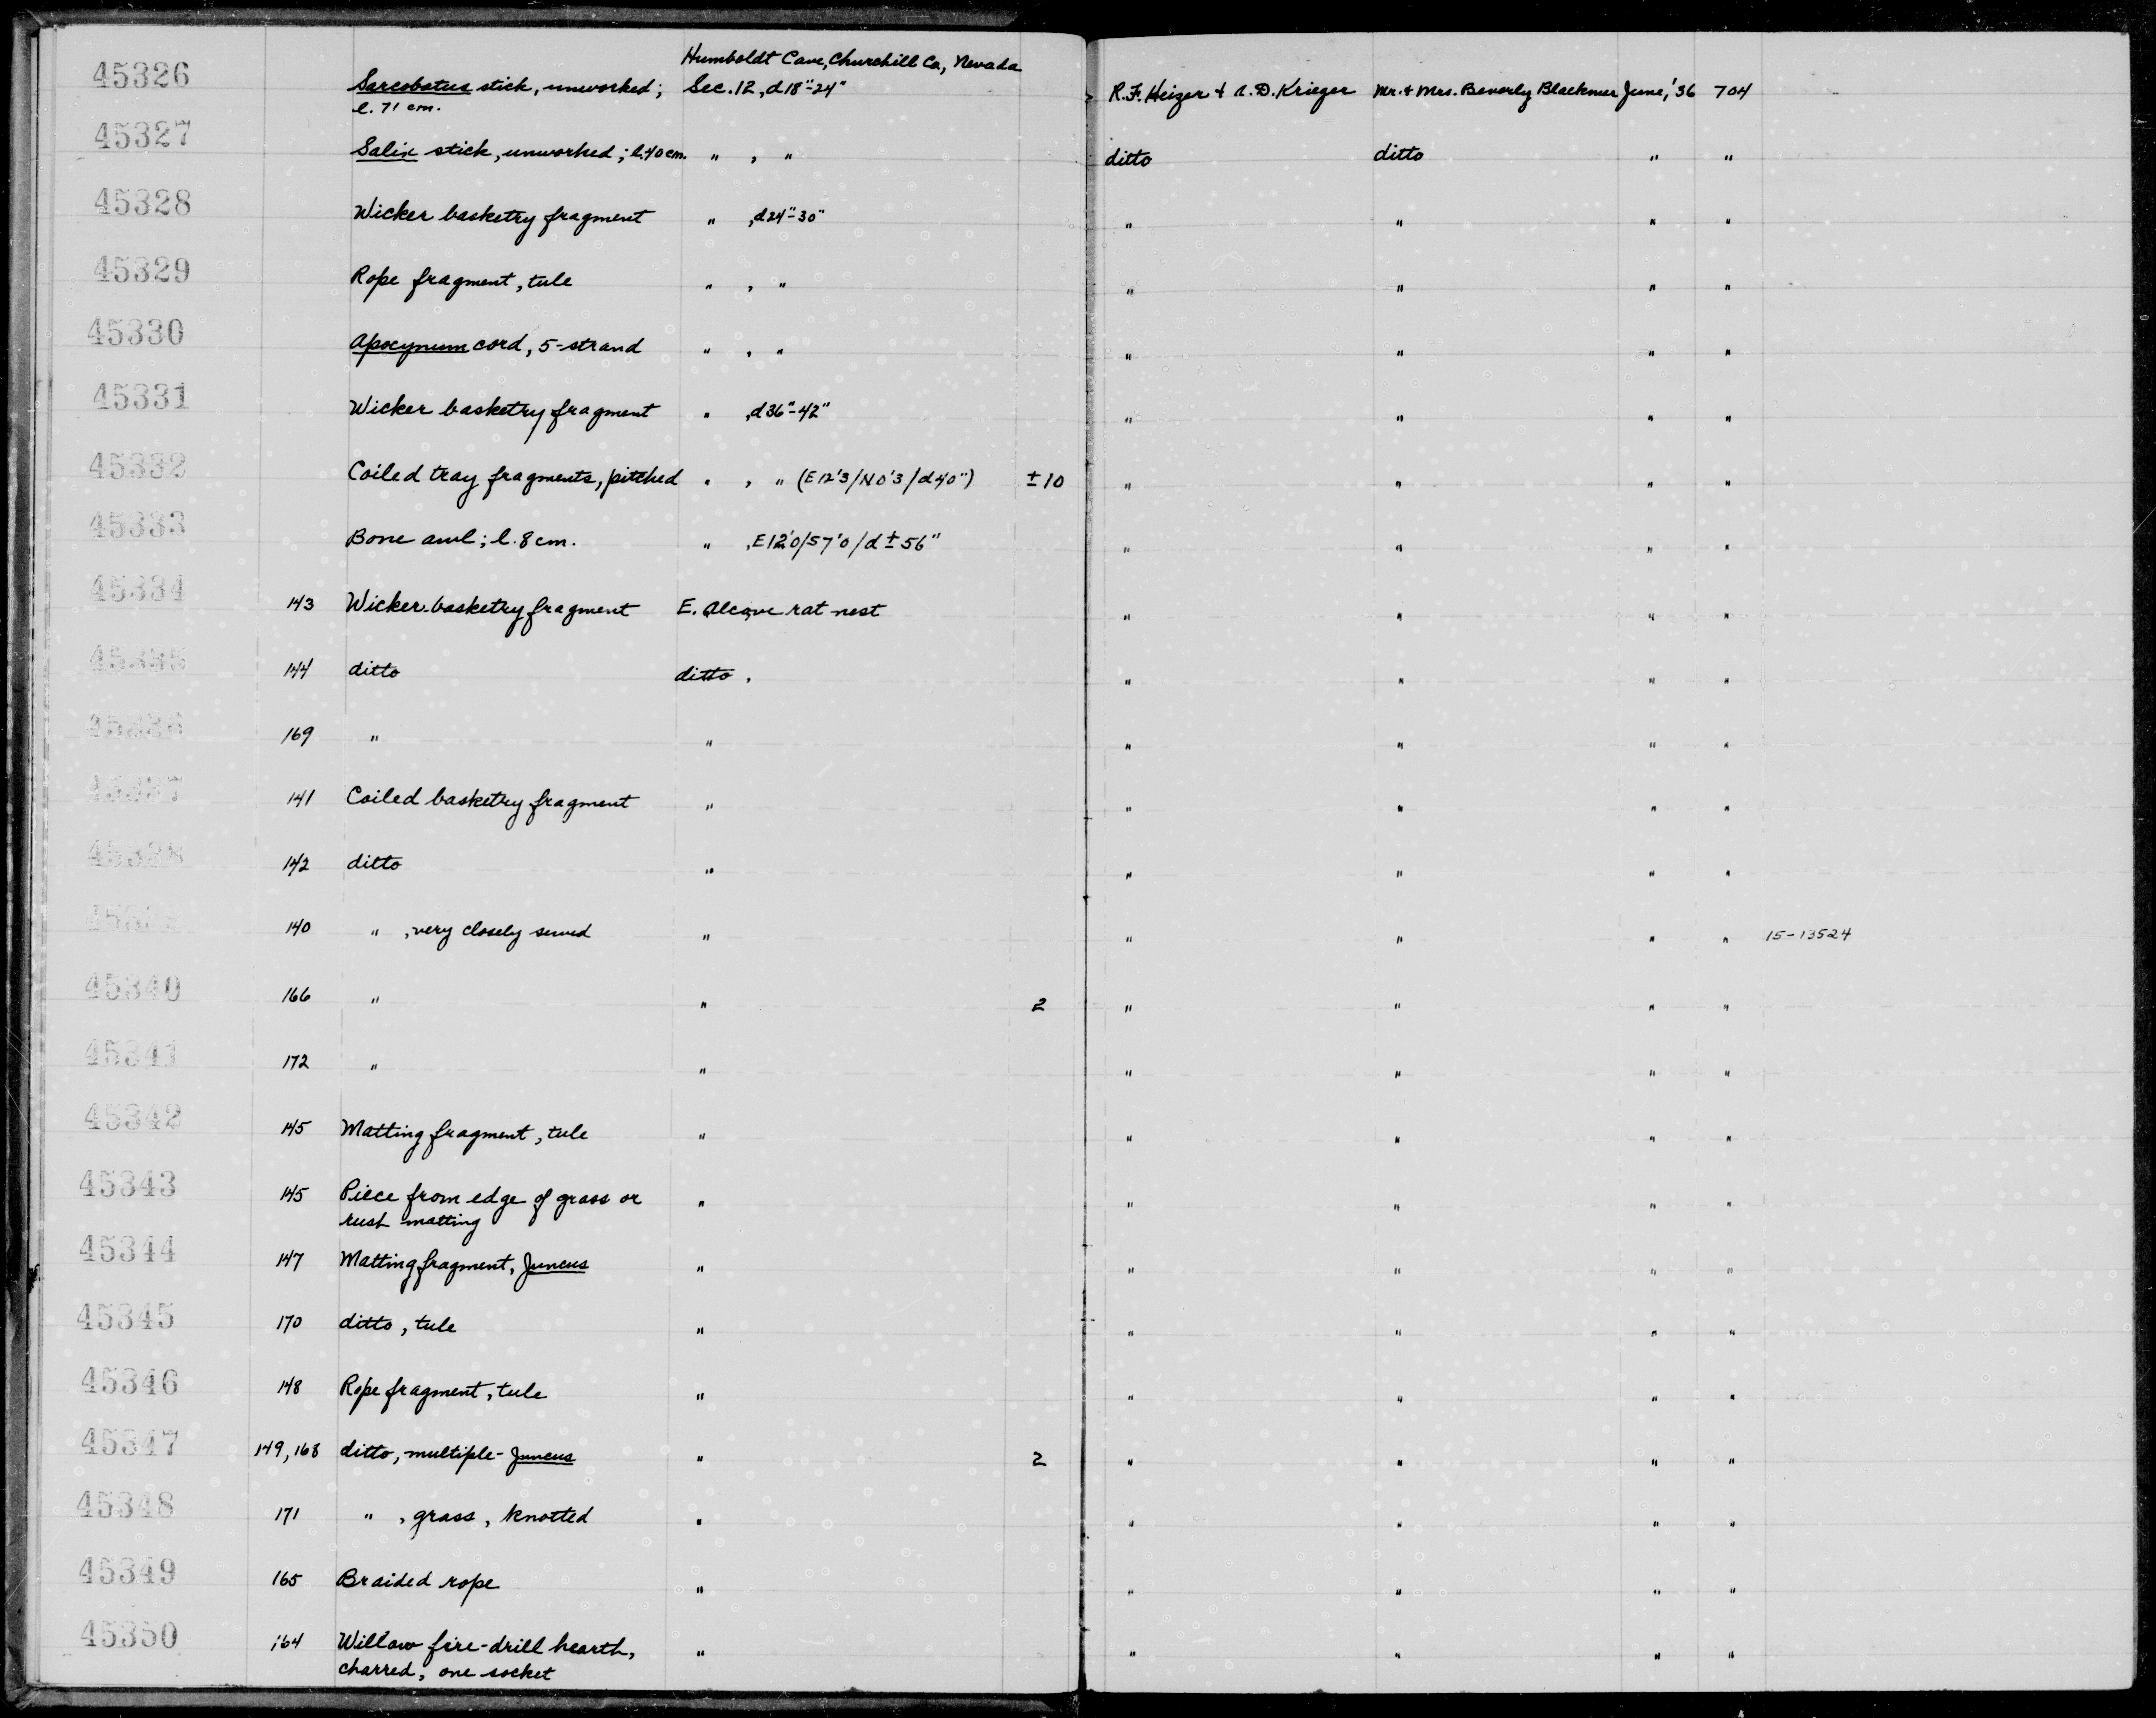 Humboldt Cave, Churchill Co, Nevada
45326 Sarcobatus stick, unworked; Sec. 12, d18"-24" R.F. Heizer & A.D. Krieger Mr. & Mrs. Beverly Blackmer June, '36 704
l. 71 cm.
45327 Salix stick, unworked; l. 40 cm. " , " ditto ditto " "
45328 Wicker basketry fragment " , d24"-30" " " " "
45329 Rope fragment, tule " , " " " " "
45330 Apocynum cord, 5-strand " , " " " " "
45331 Wicker basketry fragment " , d36"-42" " " " "
45332 Coiled tray fragments, pitched " , " (E12'3/N0'3/d40") ±10 " " " "
45333 Bone awl; l. 8 cm. " , E12'0/S7'0/d±56" " " " "
45334 143 Wicker basketry fragment E. Alcove rat nest " " " "
45335 144 ditto ditto , " " " "
45336 169 " " " " " "
45337 141 Coiled basketry fragment " " " " "
45338 142 ditto " " " " "
140 " , very closely sewed " " " " " 15-13524
45340 166 " " 2 " " " "
45341 172 " " " " " "
45342 145 Matting fragment, tule " " " " "
45343 145 Piece from edge of grass or " " " " "
rush matting
45344 147 Matting fragment, Juncus " " " " "
45345 170 ditto, tule " " " " "
45346 148 Rope fragment, tule " " " " "
45347 149, 168 ditto, multiple-Juncus " 2 " " " "
45348 171 " , grass, knotted " " " " "
45349 165 Braided rope " " " " "
45350 164 Willow fire-drill hearth, " " " " "
charred, one socket